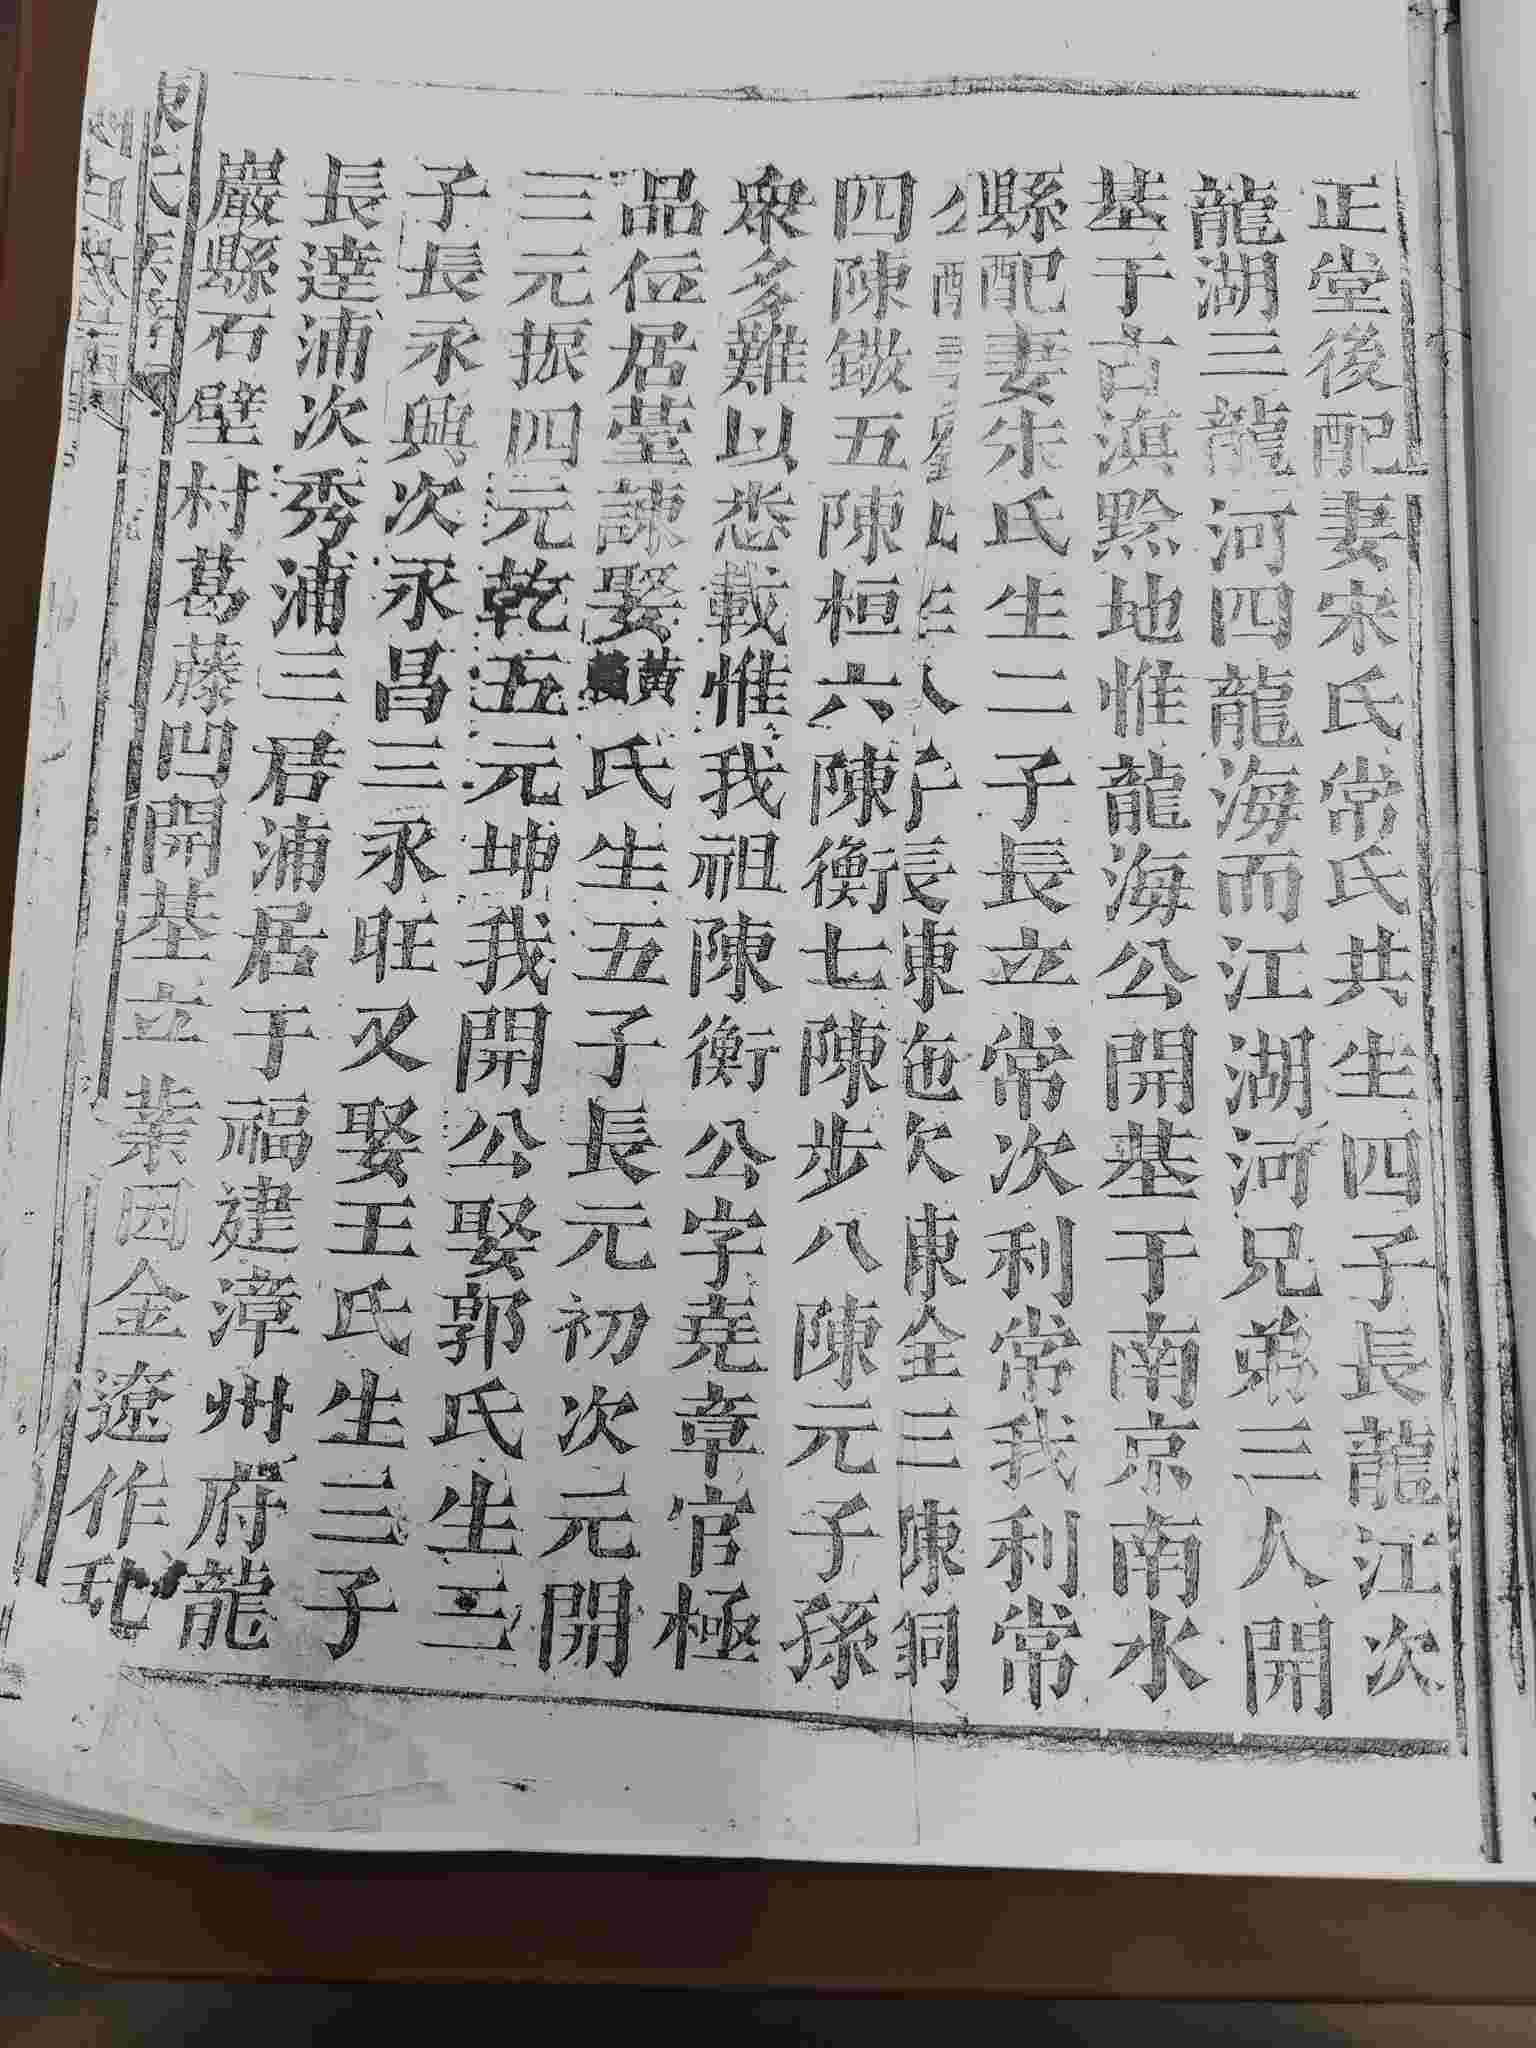 正堂後配妻宋氏常氏共生四子長龍江次
龍湖三龍河四龍海而江湖河兄弟三人開
基于古滇黔地惟龍海公開基于南京南水
縣配妻朱氏生二子長立常次利常我利常
公配 長陳 次陳全三陳洞
四陳鏾五陳桓六陳衡七陳步八陳元子孫
衆多難以悉載惟我祖陳衡公字尭章官極
品位居臺諫娶黃氏生五子長元初次元開
三元振四元乾五元坤我開公娶郭氏生三
子長永興次永昌三永旺又娶王氏生三子
長達浦次秀浦三君浦居于福建漳州府龍
巖縣石壁村葛藤凹開基立業因金遼作乱